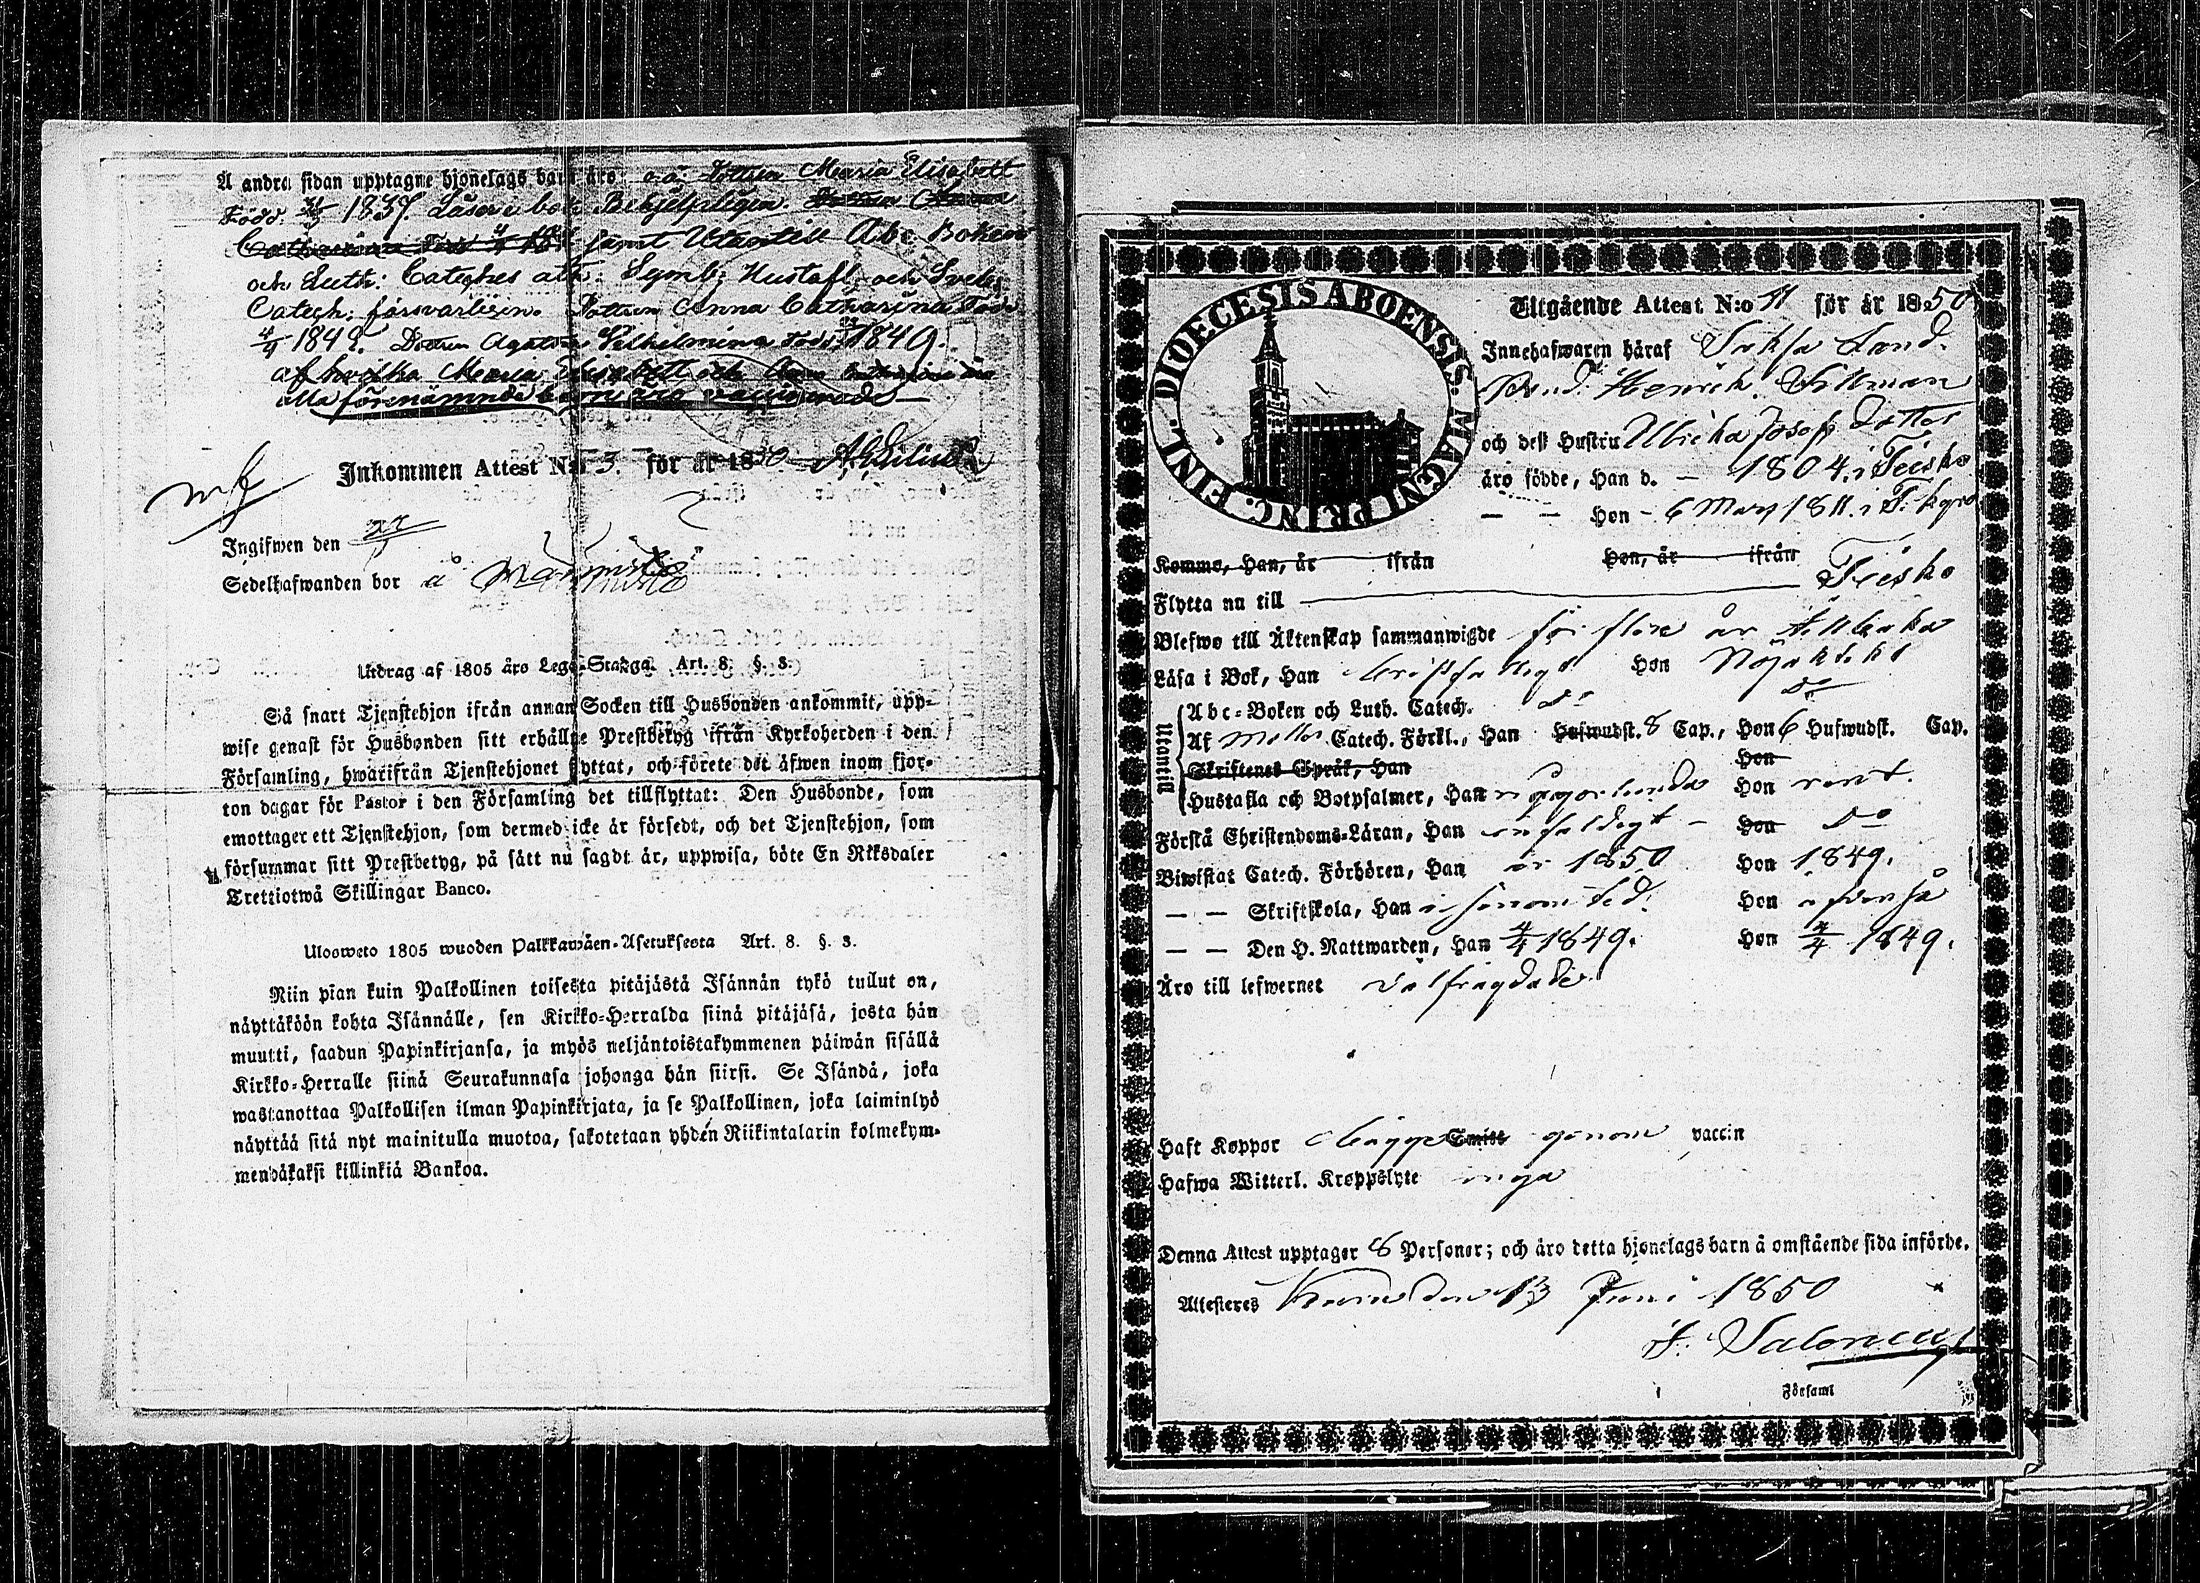 Å andra sidan upptagne hjonelags barn äro: a a: Dottren Maria Elisabett
Född 1837. Läser i bok Behjelpligen. Dottren Anna
Catharina Född samt Utantill Abc Boken
och Luth: Cateches ath: Symb: Hustafl: och Svebel:
Catech: försvarligen. Dottren Anna Catharina Född
4/4 184 Dottren Agata Vilhelmina Född 1849.
af hvilka Maria Elisabett och Anna Catharina äro
alla förenämnde barn äro vaccinerade
Inkommen Attest N:o 3. för år 1850
Ingifwen den
Sedelhafwanden bor å
Utdrag af 1805 års Lego-Stadga. Art. 8. §. 3.
Så snart Tjenstehjon ifrån annan Socken till Husbonden ankommit, upp-
wise genast för Husbonden sitt erhållne Prestbetyg ifrån Kyrkoherden i den
Församling, hwarifrån Tjenstehjonet flyttat, och förete det äfwen inom fjor-
ton dagar för Pastor i den Församling det tillflyttat: Den Husbonde, som
emottager ett Tjenstehjon, som dermed icke är försedt, och det Tjenstehjon, som
försummar sitt Prestbetyg, på sätt nu sagdt är, uppwisa, böte En Riksdaler
Trettiotwå Skillingar Banco.
Ulosweto 1805 wuoden Palkkawäen-Asetuksesta Art. 8. §. 3.
Niin pian kuin Palkollinen toisesta pitäjästä Isännän tykö tullut on,
näyttäköön kohta Isännälle, sen Kirkko-Herralda siinä pitäjäsä, josta hän
muutti, saadun Papinkirjansa, ja myös neljäntoistakymmenen päiwän sisällä
Kirkko-Herralle siinä Seurakunnasa johonga hän siirsi. Se Isändä, joka
wastanottaa Palkollisen ilman Papinkirjata, ja se Palkollinen, joka laiminlyö
näyttää sitä nyt mainitulla muotoa, sakotetaan yhden Riikintalarin kolmekym-
mendäkaksi killinkiä Bankoa.
DIOECESIS ABOENSIS. MAGNI PRINC. FINL.
Utgående Attest N:o 11 för år 1850
Innehafwaren häraf
Henrik
och dess Hustru Ulrika Josefs Dotter
äro födde, Han d. — 1804. i Teisko
— — Hon - 6 Mars 1811. i
Komme, Han, år ifrån Hon, år ifrån
Flytta nu till Teisko
Blefwo till Äktenskap sammanwigde för flere år tillbaka
Läsa i Bok, Han Hon Nöjaktigt
Utantill
Abc-Boken och Luth. Catech. Do Do
Af Catech. Förkl., Han Hufwudst. 8 Cap., Hon 6 Hufwudst. Cap.
Skriftenes Språk, Han Hon
Hustafla och Botpsalmer, Han någorlunda Hon
Förstå Christendoms-Läran, Han enfaldigt - Hon Do
Biwistat Catech. Förhören, Han år 1850 Hon 1849.
— — Skriftskola, Han Hon äfvenså
— — Den H. Nattwarden, Han 4/4 1849. Hon 4/4 1849.
Äro till lefwernet välfrägdade
Haft Koppor begge Smitt genom vaccin
Hafwa Witterl. Kroppslyte inga
Denna Attest upptager 8 Personer; och äro detta hjonelags barn å omstående sida införde.
Attesteres den 13 Juni 1850
Församl